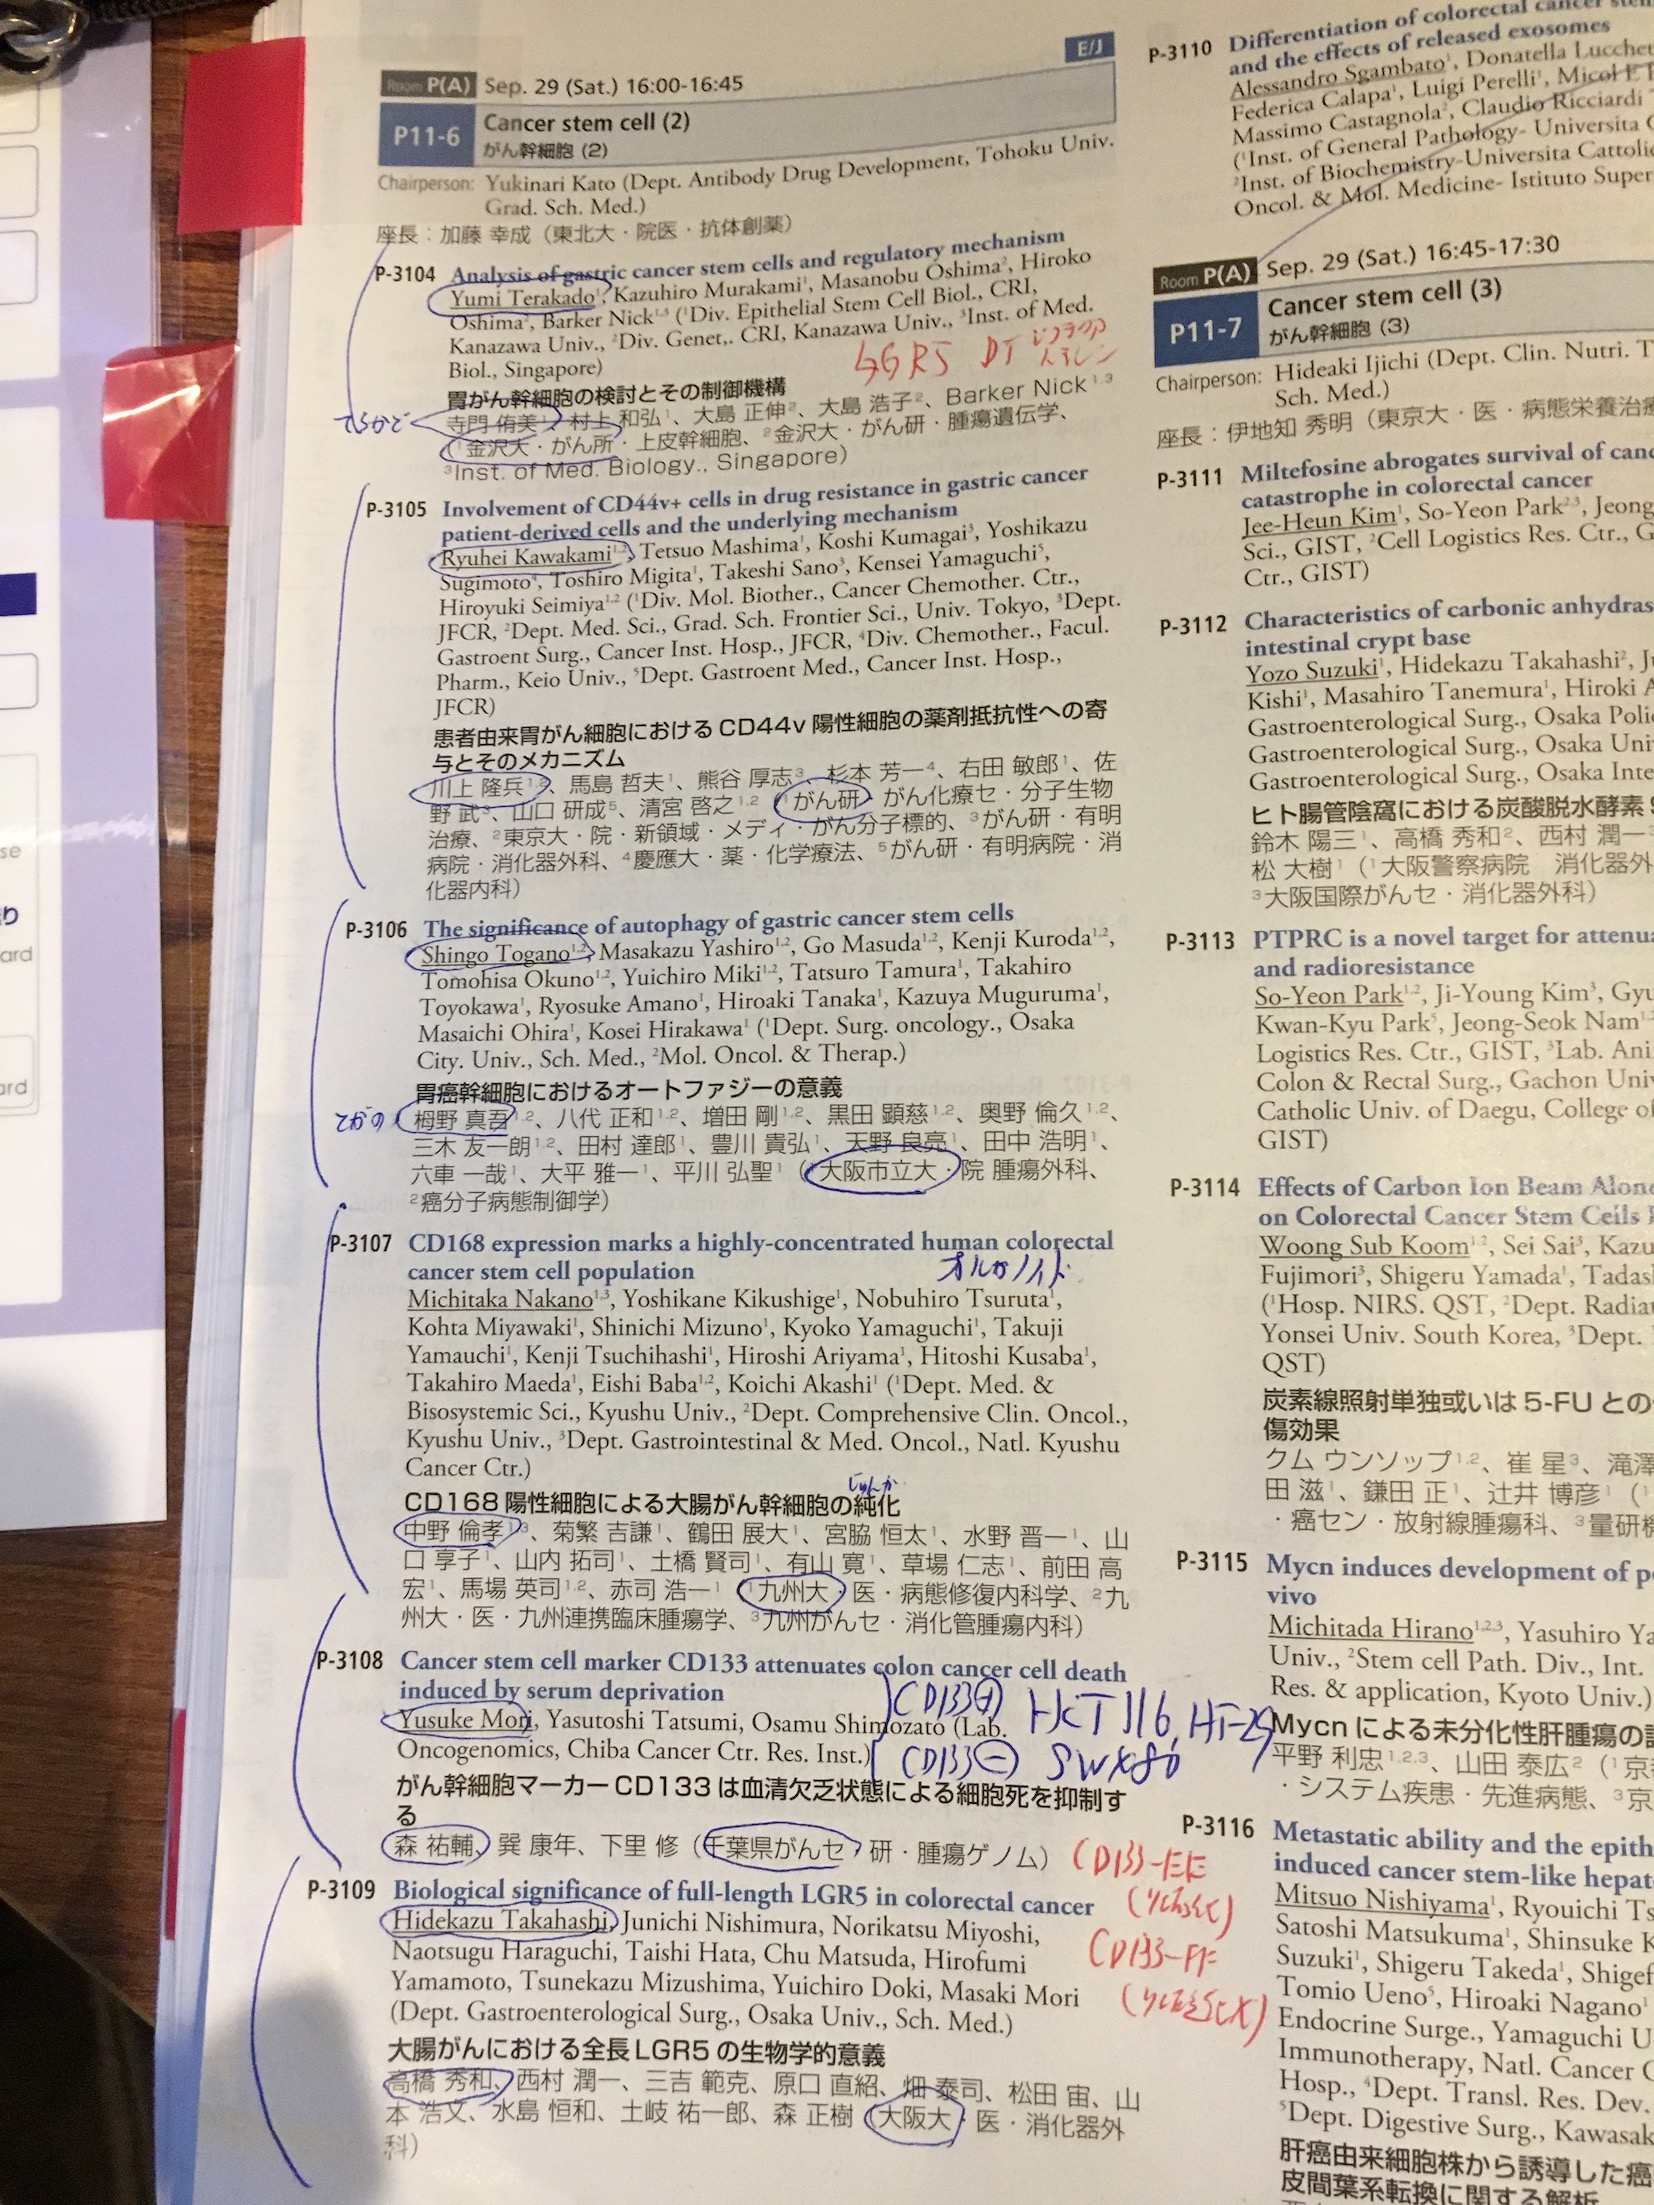 Room P(A) Sep. 29 (Sat.) 16:00-16:45
E/J
P11-6 Cancer stem cell (2)
がん幹細胞（2）
Chairperson: Yukinari Kato (Dept. Antibody Drug Development, Tohoku Univ.
Grad. Sch. Med.)
座長：加藤 幸成（東北大・院医・抗体創薬）
P-3104 Analysis of gastric cancer stem cells and regulatory mechanism
Yumi Terakado¹, Kazuhiro Murakami¹, Masanobu Oshima², Hiroko
Oshima², Barker Nick¹·³ (¹Div. Epithelial Stem Cell Biol., CRI,
Kanazawa Univ., ²Div. Genet,. CRI, Kanazawa Univ., ³Inst. of Med.
Biol., Singapore)
DT
胃がん幹細胞の検討とその制御機構
てらかど 寺門 侑美¹、村上 和弘¹、大島 正伸²、大島 浩子²、Barker Nick¹·³
（¹金沢大・がん所・上皮幹細胞、²金沢大・がん研・腫瘍遺伝学、
³Inst. of Med. Biology., Singapore）
P-3105 Involvement of CD44v+ cells in drug resistance in gastric cancer
patient-derived cells and the underlying mechanism
Ryuhei Kawakami¹·², Tetsuo Mashima¹, Koshi Kumagai³, Yoshikazu
Sugimoto⁴, Toshiro Migita¹, Takeshi Sano³, Kensei Yamaguchi⁵,
Hiroyuki Seimiya¹·² (¹Div. Mol. Biother., Cancer Chemother. Ctr.,
JFCR, ²Dept. Med. Sci., Grad. Sch. Frontier Sci., Univ. Tokyo, ³Dept.
Gastroent Surg., Cancer Inst. Hosp., JFCR, ⁴Div. Chemother., Facul.
Pharm., Keio Univ., ⁵Dept. Gastroent Med., Cancer Inst. Hosp.,
JFCR)
患者由来胃がん細胞におけるCD44v陽性細胞の薬剤抵抗性への寄
与とそのメカニズム
川上 隆兵¹·²、馬島 哲夫¹、熊谷 厚志³、杉本 芳一⁴、右田 敏郎¹、佐
野 武³、山口 研成⁵、清宮 啓之¹·²（¹がん研・がん化療セ・分子生物
治療、²東京大・院・新領域・メディ・がん分子標的、³がん研・有明
病院・消化器外科、⁴慶應大・薬・化学療法、⁵がん研・有明病院・消
化器内科）
P-3106 The significance of autophagy of gastric cancer stem cells
Shingo Togano¹·², Masakazu Yashiro¹·², Go Masuda¹·², Kenji Kuroda¹·²,
Tomohisa Okuno¹·², Yuichiro Miki¹·², Tatsuro Tamura¹, Takahiro
Toyokawa¹, Ryosuke Amano¹, Hiroaki Tanaka¹, Kazuya Muguruma¹,
Masaichi Ohira¹, Kosei Hirakawa¹ (¹Dept. Surg. oncology., Osaka
City. Univ., Sch. Med., ²Mol. Oncol. & Therap.)
胃癌幹細胞におけるオートファジーの意義
とがの 栂野 真吾¹·²、八代 正和¹·²、増田 剛¹·²、黒田 顕慈¹·²、奥野 倫久¹·²、
三木 友一朗¹·²、田村 達郎¹、豊川 貴弘¹、天野 良亮¹、田中 浩明¹、
六車 一哉¹、大平 雅一¹、平川 弘聖¹（¹大阪市立大・院 腫瘍外科、
²癌分子病態制御学）
P-3107 CD168 expression marks a highly-concentrated human colorectal
cancer stem cell population
オルガノイド
Michitaka Nakano¹·³, Yoshikane Kikushige¹, Nobuhiro Tsuruta¹,
Kohta Miyawaki¹, Shinichi Mizuno¹, Kyoko Yamaguchi¹, Takuji
Yamauchi¹, Kenji Tsuchihashi¹, Hiroshi Ariyama¹, Hitoshi Kusaba¹,
Takahiro Maeda¹, Eishi Baba¹·², Koichi Akashi¹ (¹Dept. Med. &
Bisosystemic Sci., Kyushu Univ., ²Dept. Comprehensive Clin. Oncol.,
Kyushu Univ., ³Dept. Gastrointestinal & Med. Oncol., Natl. Kyushu
Cancer Ctr.)
じゅんか
CD168陽性細胞による大腸がん幹細胞の純化
中野 倫孝¹·³、菊繁 吉謙¹、鶴田 展大¹、宮脇 恒太¹、水野 晋一¹、山
口 享子¹、山内 拓司¹、土橋 賢司¹、有山 寛¹、草場 仁志¹、前田 高
宏¹、馬場 英司¹·²、赤司 浩一¹（¹九州大・医・病態修復内科学、²九
州大・医・九州連携臨床腫瘍学、³九州がんセ・消化管腫瘍内科）
P-3108 Cancer stem cell marker CD133 attenuates colon cancer cell death
induced by serum deprivation
Yusuke Mori, Yasutoshi Tatsumi, Osamu Shimozato (Lab.
Oncogenomics, Chiba Cancer Ctr. Res. Inst.)
CD133⊕ HCT116, HT-29
CD133⊖ SW480
がん幹細胞マーカーCD133は血清欠乏状態による細胞死を抑制す
る
森 祐輔、巽 康年、下里 修（千葉県がんセ・研・腫瘍ゲノム）
CD133-EE
P-3109 Biological significance of full-length LGR5 in colorectal cancer
Hidekazu Takahashi, Junichi Nishimura, Norikatsu Miyoshi,
CD133-FF
Naotsugu Haraguchi, Taishi Hata, Chu Matsuda, Hirofumi
Yamamoto, Tsunekazu Mizushima, Yuichiro Doki, Masaki Mori
(Dept. Gastroenterological Surg., Osaka Univ., Sch. Med.)
大腸がんにおける全長LGR5の生物学的意義
高橋 秀和、西村 潤一、三吉 範克、原口 直紹、畑 泰司、松田 宙、山
本 浩文、水島 恒和、土岐 祐一郎、森 正樹（大阪大・医・消化器外
科）
P-3110 Differentiation of colorectal cancer stem
and the effects of released exosomes
Alessandro Sgambato¹, Donatella Lucchet
Federica Calapa¹, Luigi Perelli¹, Micol E
Massimo Castagnola², Claudio Ricciardi
(¹Inst. of General Pathology- Universita
²Inst. of Biochemistry-Universita Cattoli
Oncol. & Mol. Medicine- Istituto Super
Room P(A) Sep. 29 (Sat.) 16:45-17:30
P11-7 Cancer stem cell (3)
がん幹細胞（3）
Chairperson: Hideaki Ijichi (Dept. Clin. Nutri. T
Sch. Med.)
座長：伊地知 秀明（東京大・医・病態栄養治療
P-3111 Miltefosine abrogates survival of canc
catastrophe in colorectal cancer
Jee-Heun Kim¹, So-Yeon Park²·³, Jeong
Sci., GIST, ²Cell Logistics Res. Ctr., G
Ctr., GIST)
P-3112 Characteristics of carbonic anhydras
intestinal crypt base
Yozo Suzuki¹, Hidekazu Takahashi², Ju
Kishi¹, Masahiro Tanemura¹, Hiroki A
Gastroenterological Surg., Osaka Polic
Gastroenterological Surg., Osaka Uni
Gastroenterological Surg., Osaka Inte
ヒト腸管陰窩における炭酸脱水酵素9
鈴木 陽三¹、高橋 秀和²、西村 潤一³
松 大樹¹（¹大阪警察病院 消化器外
³大阪国際がんセ・消化器外科）
P-3113 PTPRC is a novel target for attenua
and radioresistance
So-Yeon Park¹·², Ji-Young Kim³, Gyu
Kwan-Kyu Park⁵, Jeong-Seok Nam¹·
Logistics Res. Ctr., GIST, ³Lab. Ani
Colon & Rectal Surg., Gachon Univ
Catholic Univ. of Daegu, College of
GIST)
P-3114 Effects of Carbon Ion Beam Alone
on Colorectal Cancer Stem Cells
Woong Sub Koom¹·², Sei Sai³, Kazu
Fujimori³, Shigeru Yamada¹, Tadas
(¹Hosp. NIRS. QST, ²Dept. Radia
Yonsei Univ. South Korea, ³Dept.
QST)
炭素線照射単独或いは5-FUとの
傷効果
クム ウンソップ¹·²、崔 星³、滝澤
田 滋¹、鎌田 正¹、辻井 博彦¹（¹
・癌セン・放射線腫瘍科、³量研機
P-3115 Mycn induces development of p
vivo
Michitada Hirano¹·²·³, Yasuhiro Ya
Univ., ²Stem cell Path. Div., Int.
Res. & application, Kyoto Univ.)
Mycnによる未分化性肝腫瘍の
平野 利忠¹·²·³、山田 泰広²（¹京
・システム疾患・先進病態、³京
P-3116 Metastatic ability and the epith
induced cancer stem-like hepat
Mitsuo Nishiyama¹, Ryouichi Ts
Satoshi Matsukuma¹, Shinsuke K
Suzuki¹, Shigeru Takeda¹, Shigef
Tomio Ueno⁵, Hiroaki Nagano¹
Endocrine Surge., Yamaguchi U
Immunotherapy, Natl. Cancer C
Hosp., ⁴Dept. Transl. Res. Dev.
⁵Dept. Digestive Surg., Kawasak
肝癌由来細胞株から誘導した癌
皮間葉系転換に関する解析